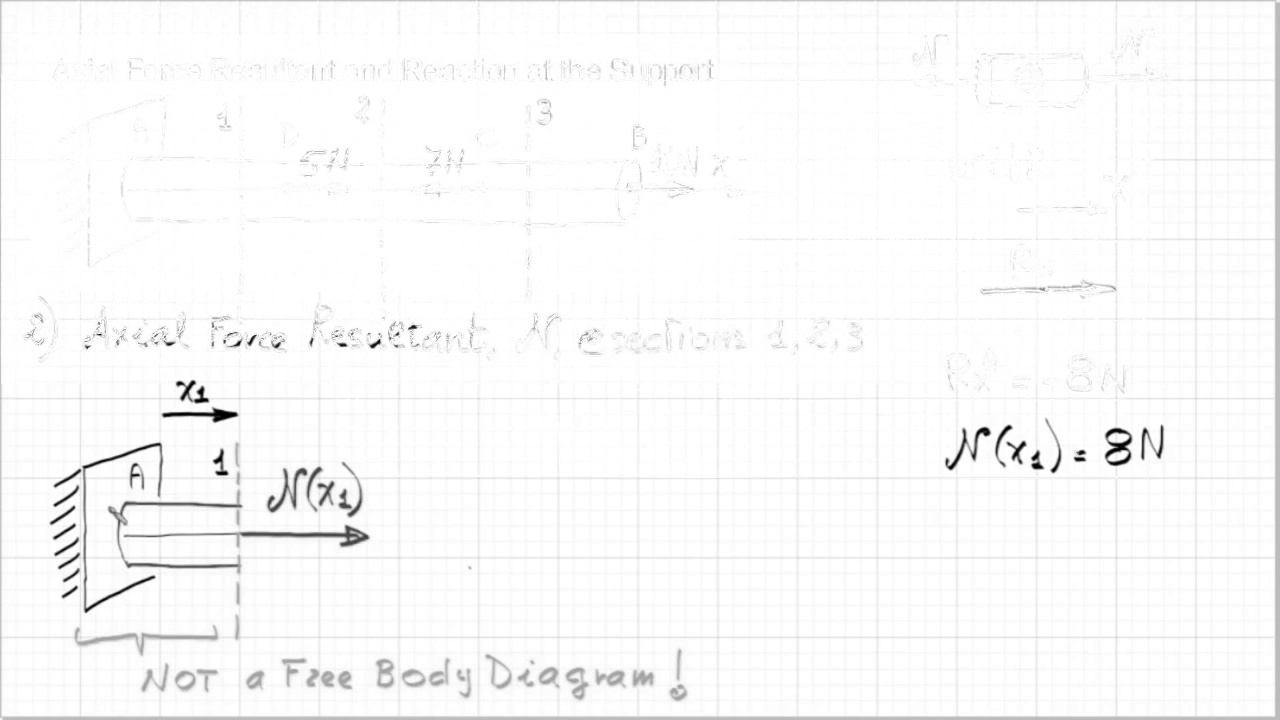 Axial Force Resultant and Reaction at the Support
N N
A 1 D 2 C 3 B
5N 7N 10N x
x
i) Axial Force Resultant, N, @ sections 1,2,3
= -8N
x1
N(x1) = 8N
A 1
N(x1)
NOT a Free Body Diagram!